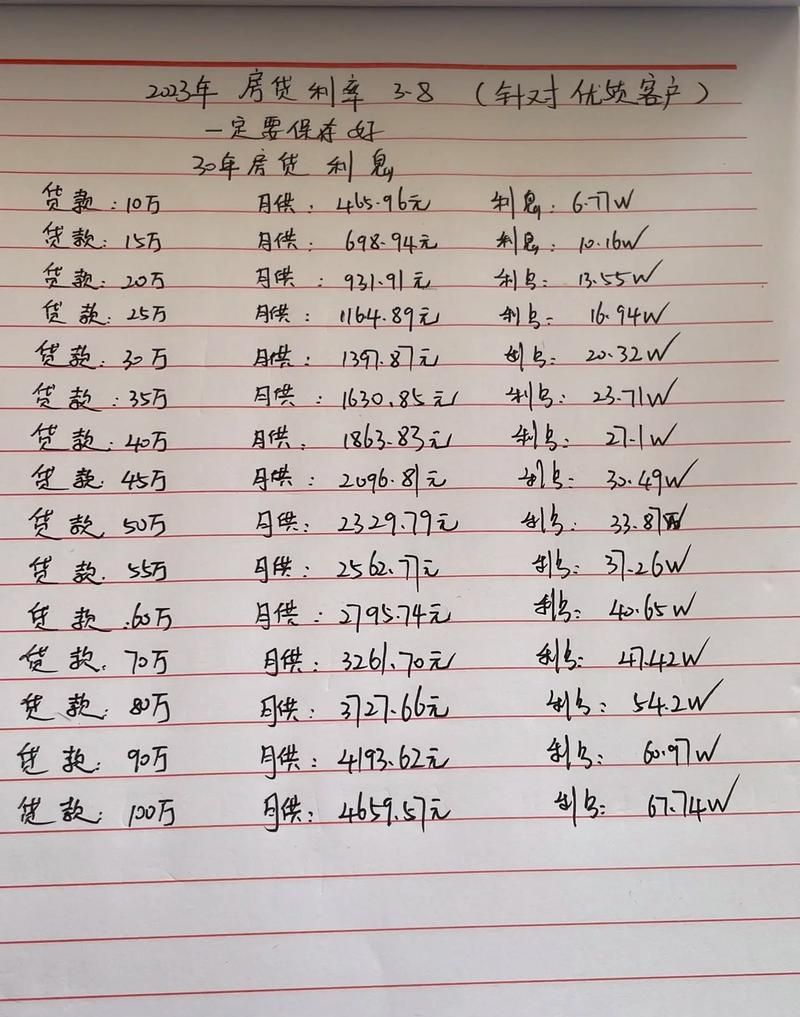 2023年 房贷利率 3.8 (针对优质客户)
一定要保存好
30年房贷 利息
贷款:10万 月供:465.96元 利息:6.77W
贷款:15万 月供:698.94元 利息:10.16W
贷款:20万 月供:931.91元 利息:13.55W
贷款:25万 月供:1164.89元 利息:16.94W
贷款:30万 月供:1397.87元 利息:20.32W
贷款:35万 月供:1630.85元 利息:23.71W
贷款:40万 月供:1863.83元 利息:27.1W
贷款:45万 月供:2096.81元 利息:30.49W
贷款 50万 月供:2329.79元 利息:33.87W
贷款.55万 月供:2562.77元 利息:37.26W
贷款.60万 月供:2795.74元 利息:40.65W
贷款.70万 月供:3261.70元 利息:47.42W
贷款:80万 月供:3727.66元 利息:54.2W
贷款:90万 月供:4193.62元 利息:60.97W
贷款:100万 月供:4659.57元 利息:67.74W